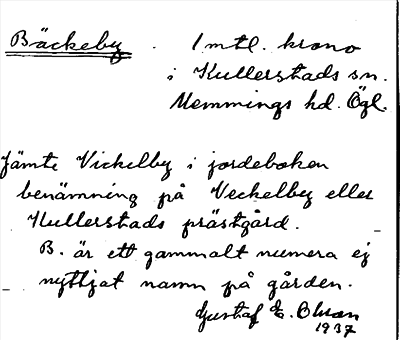 Bäckeby . 1 mtl. krono
i Kullerstads sn.
Memmings hd. Ögl.
Jämte Vickelby i jordeboken
benämning på Veckelby eller
Kullerstads prästgård.
B. är ett gammalt numera ej
nyttjat namn på gården.
Gustaf E. Olsson
1937